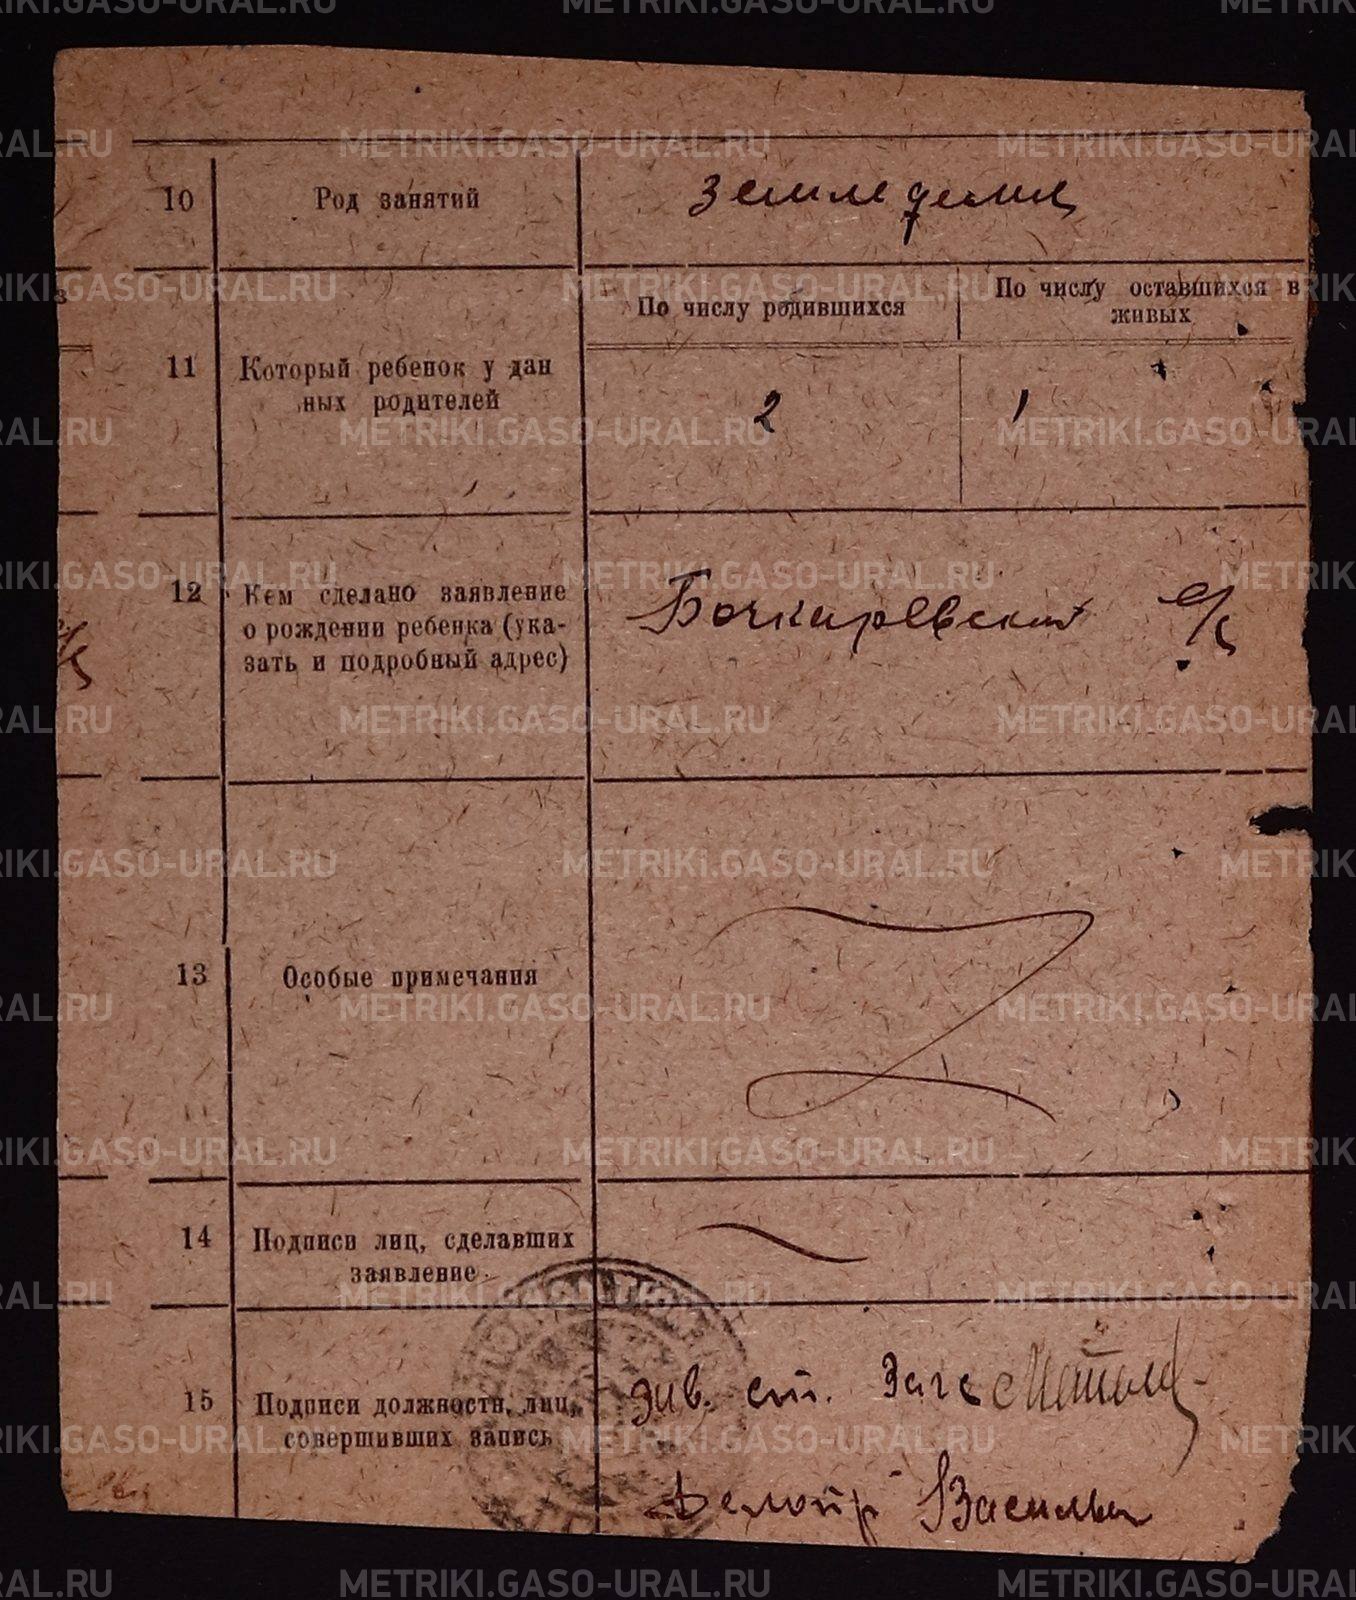 10 Род занятий земледелец
11 Который ребенок у дан
ных родителей
По числу родившихся
По числу оставшихся в
живых
2 1
12 Кем сделано заявление
о рождении ребенка (ука-
зать и подробный адрес)
Бочкаревский с/с
13 Особые примечания
14 Подписи лиц, сделавших
заявление
15 Подписи должностн. лиц,
совершивших запись
зав. ст. Загс
Делопр Васильев
METRIKI.GASO-URAL.RU